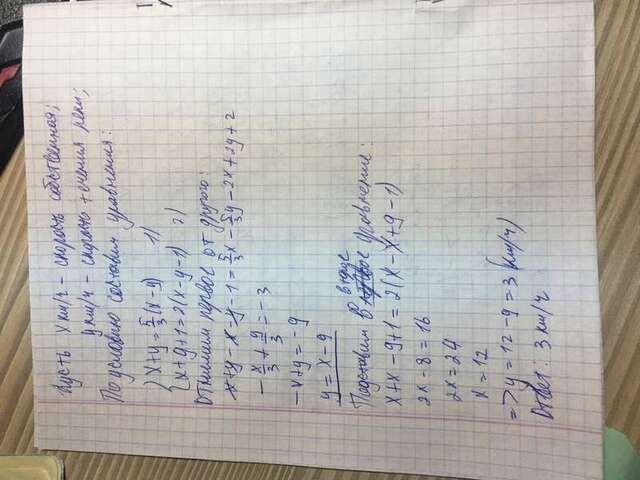 Пусть x км/ч - скорость собственная;
y км/ч - скорость течения реки;
По условию составим уравнения:
{ x+y = 5/3 (x-y) 1)
{ x+y+1 = 2(x-y-1) 2)
Отнимем первое от другого:
x+y-x-y-1 = 5/3 x - 5/3 y - 2x + 2y + 2
-x/3 + y/3 = -3
-x+y = -9
y = x-9
Подставим во второе уравнение:
x+x-9+1 = 2(x-x+9-1)
2x-8 = 16
2x = 24
x = 12
=> y = 12-9 = 3 (км/ч)
Ответ: 3 км/ч